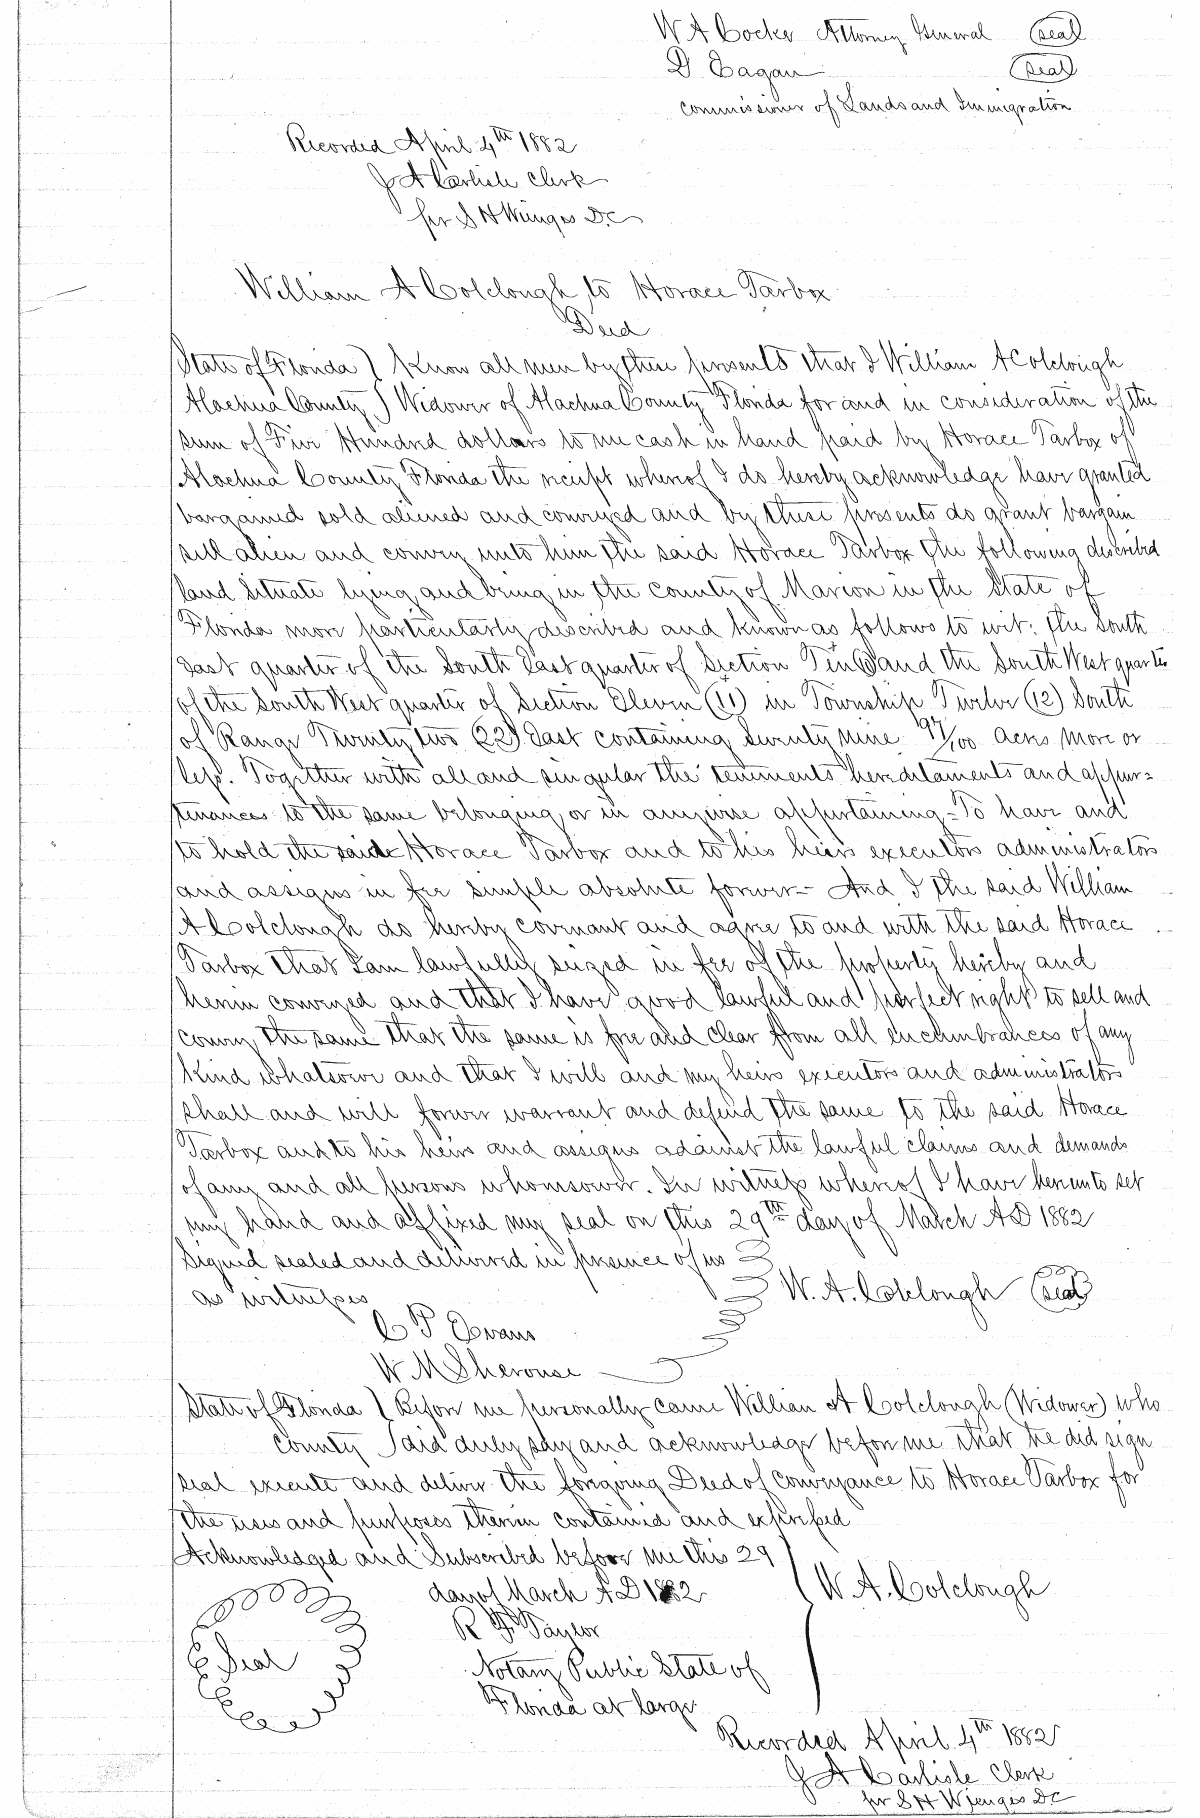 W A Cocke Attorney General (seal)
D Eagan (seal)
Commissioner of Lands and Immigration
Recorded April 4th 1882
J A Carlisle Clerk
per S H Wienges D.C
William A Colclough to Horace Tarbox
Deed
State of Florida } Know all men by these presents that I William A Colclough
Alachua County } Widower of Alachua County Florida for and in consideration of the
sum of Five Hundred dollars to me cash in hand paid by Horace Tarbox of
Alachua County Florida the receipt whereof I do hereby acknowledge have granted
bargained sold aliened and conveyed and by these presents do grant bargain
sell alien and convey unto him the said Horace Tarbox the following described
land situate lying and being in the county of Marion in the State of
Florida more particularly described and known as follows to wit: the South
East quarter of the South East quarter of Section Ten (10) and the South West quarter
of the South West quarter of Section Eleven (11) in Township Twelve (12) South
of Range Twenty two (22) East containing seventy nine 97/100 acres more or
less. Together with all and singular the tenements hereditaments and appur=
tenances to the same belonging or in anywise appertaining - To have and
to hold the said Horace Tarbox and to his heirs executors administrators
and assigns in fee simple absolute forever - And I the said William
A Colclough do hereby covenant and agree to and with the said Horace
Tarbox that I am lawfully seized in fee of the property hereby and
herein conveyed and that I have good lawful and perfect right to sell and
convey the same that the same is free and clear from all encumbrances of any
kind whatsoever and that I will and my heirs executors and administrators
shall and will forever warrant and defend the same to the said Horace
Tarbox and to his heirs and assigns against the lawful claims and demands
of any and all persons whomsoever. In witness whereof I have hereunto set
my hand and affixed my seal on this 29th day of March AD 1882
Signed sealed and delivered in presence of us
as witnesses
W. A. Colclough (seal)
C P Evans
W M Sherouse
State of Florida } Before me personally came William A Colclough (Widower) who
County } did duly say and acknowledge before me that he did sign
seal execute and deliver the foregoing Deed of Conveyance to Horace Tarbox for
the uses and purposes therein contained and expressed
Acknowledged and Subscribed before me this 29
day of March A D 1882
W. A. Colclough
R F Taylor
Seal
Notary Public State of
Florida at large
Recorded April 4th 1882
J A Carlisle Clerk
per S H Wienges DC